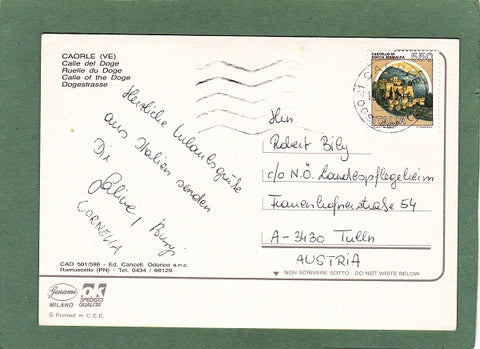 CAORLE (VE)
Calle del Doge
Ruelle du Doge
Calle of the Doge
Dogestrasse
CASTELLO DI
ROCCA SINIBALDA
550
ITALIA
30021 CA
Herzliche Urlaubsgrüße
aus Italien senden
Dir
CORNELIA
Herrn
Robert Bily
c/o N.Ö. Landespflegeheim
Frauenhofnerstraße 54
A-3430 Tulln
AUSTRIA
CAO 501/598 - Ed. Cancell. Odorico s.n.c.
Ramuscello (PN) - Tel. 0434 / 68129
NON SCRIVERE SOTTO - DO NOT WRITE BELOW
Garami
MILANO
OK
SPEDISCI
QUALITA'
© Printed in C.E.E.